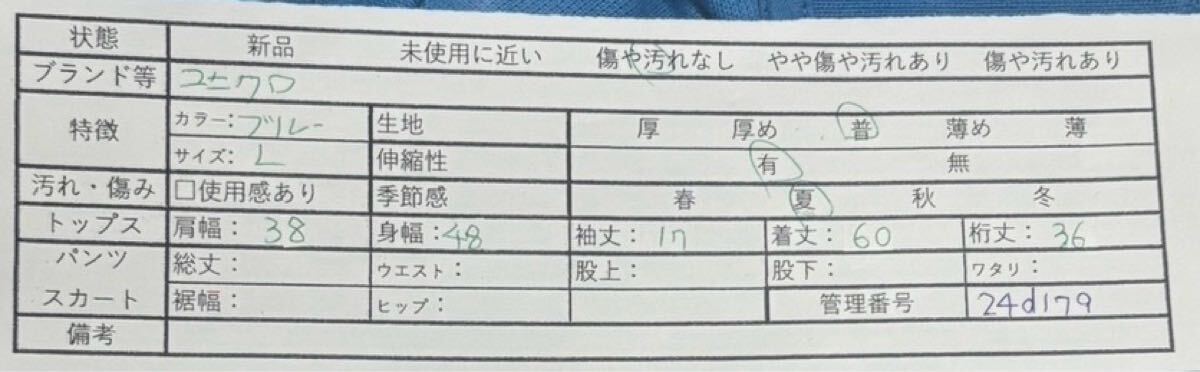 状態 新品 未使用に近い 傷や汚れなし やや傷や汚れあり 傷や汚れあり
ブランド等 ユニクロ
特徴 カラー:ブルー 生地 厚 厚め 普 薄め 薄
サイズ:L 伸縮性 有 無
汚れ・傷み □使用感あり 季節感 春 夏 秋 冬
トップス 肩幅:38 身幅:48 袖丈:17 着丈:60 裄丈:36
パンツ 総丈: ウエスト: 股上: 股下: ワタリ:
スカート 裾幅: ヒップ: 管理番号 24d179
備考